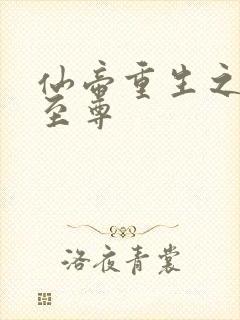 仙帝重生之
至尊
洛夜青裳